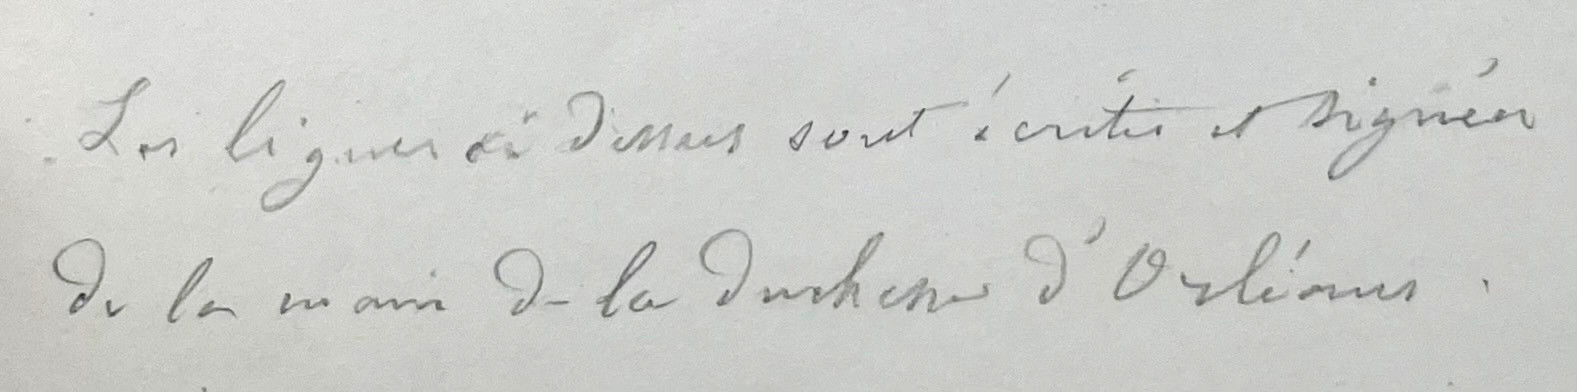 Les lignes ci dessus sont écrites et signées
de la main de la duchesse d'Orléans.